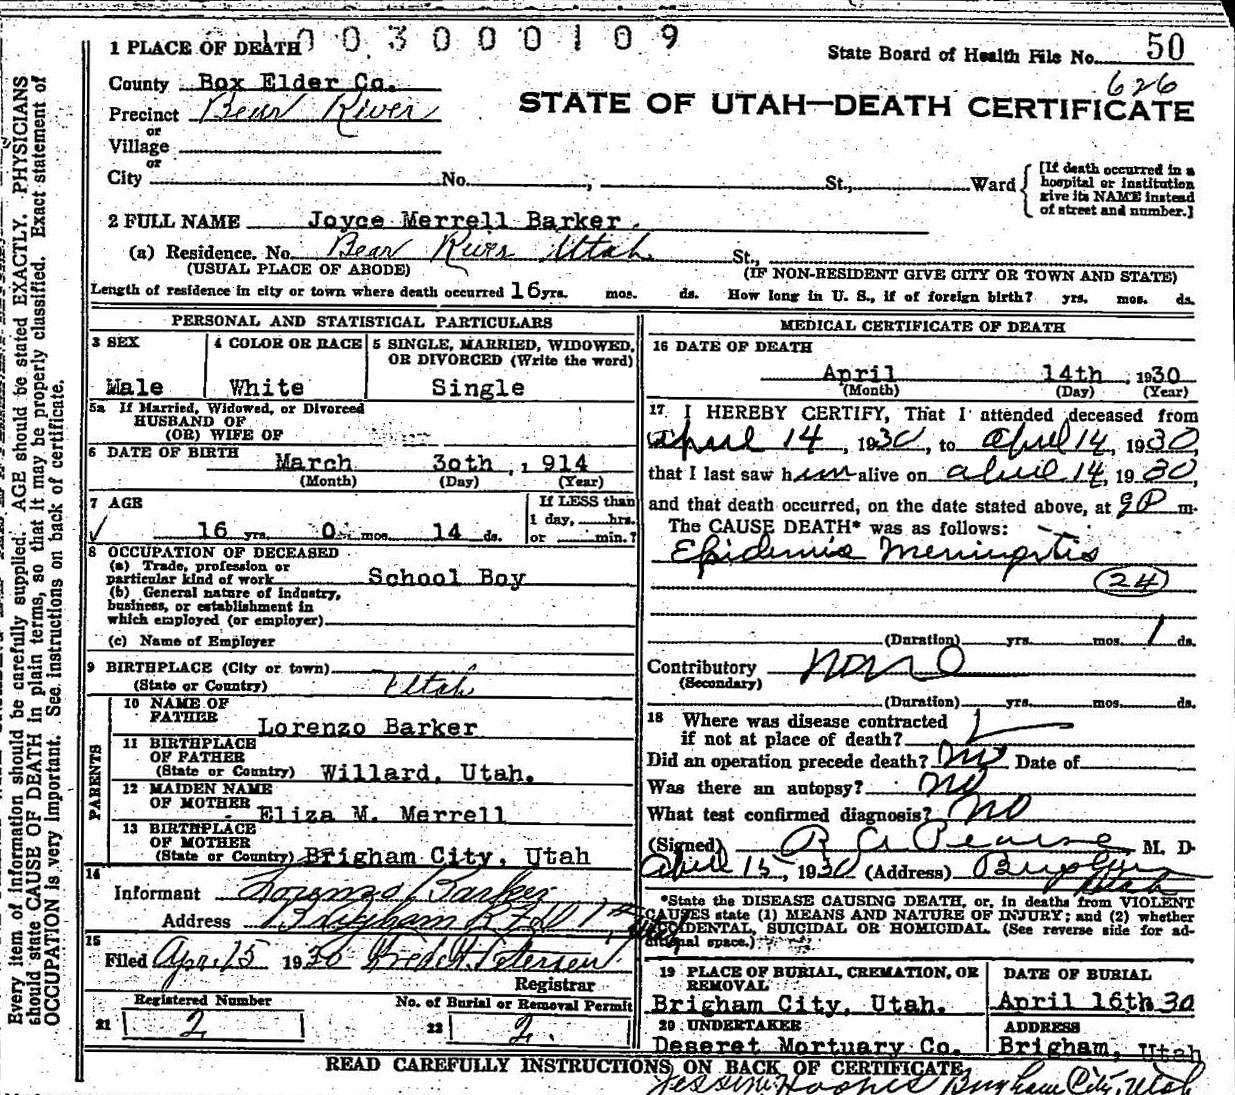 1003000109
1 PLACE OF DEATH
State Board of Health File No. 50
County Box Elder Co.
626
STATE OF UTAH—DEATH CERTIFICATE
Precinct Bear River
or
Village
or
City No. , St., Ward
[If death occurred in a hospital or institution give its NAME instead of street and number.]
2 FULL NAME Joyce Merrell Barker.
(a) Residence. No. Bear River Utah. St.,
(USUAL PLACE OF ABODE) (IF NON-RESIDENT GIVE CITY OR TOWN AND STATE)
Length of residence in city or town where death occurred 16 yrs. mos. ds. How long in U. S., if of foreign birth? yrs. mos. ds.
PERSONAL AND STATISTICAL PARTICULARS
3 SEX 4 COLOR OR RACE 5 SINGLE, MARRIED, WIDOWED,
OR DIVORCED (Write the word)
Male White Single
5a If Married, Widowed, or Divorced
HUSBAND OF
(OR) WIFE OF
6 DATE OF BIRTH March 30th , 1914
(Month) (Day) (Year)
7 AGE If LESS than
1 day, hrs.
16 yrs. 0 mos. 14 ds. or min.?
8 OCCUPATION OF DECEASED
(a) Trade, profession or
particular kind of work School Boy
(b) General nature of industry,
business, or establishment in
which employed (or employer)
(c) Name of Employer
9 BIRTHPLACE (City or town)
(State or Country) Utah
PARENTS
10 NAME OF
FATHER Lorenzo Barker
11 BIRTHPLACE
OF FATHER
(State or Country) Willard, Utah.
12 MAIDEN NAME
OF MOTHER Eliza M. Merrell
13 BIRTHPLACE
OF MOTHER
(State or Country) Brigham City, Utah
14
Informant Lorenzo Barker
Address Brigham R F D 1
15
Filed Apr. 15 1930 Fred H. Petersen
Registrar
Registered Number No. of Burial or Removal Permit
21 2 22 2.
MEDICAL CERTIFICATE OF DEATH
16 DATE OF DEATH
April 14th , 1930
(Month) (Day) (Year)
17 I HEREBY CERTIFY, That I attended deceased from
April 14, 1930, to April 14, 1930,
that I last saw him alive on April 14, 1930,
and that death occurred, on the date stated above, at 9 P m.
The CAUSE DEATH* was as follows:
Epidemic Meningitis
24
(Duration) yrs. mos. 1 ds.
Contributory none
(Secondary)
(Duration) yrs. mos. ds.
18 Where was disease contracted
if not at place of death?
Did an operation precede death? No Date of
Was there an autopsy? No
What test confirmed diagnosis? No
(Signed) R A Pearse M. D.
April 15, 1930 (Address) Brigham Utah
*State the DISEASE CAUSING DEATH, or, in deaths from VIOLENT
CAUSES state (1) MEANS AND NATURE OF INJURY; and (2) whether
ACCIDENTAL, SUICIDAL OR HOMICIDAL. (See reverse side for ad-
ditional space.)
19 PLACE OF BURIAL, CREMATION, OR
REMOVAL
Brigham City, Utah.
DATE OF BURIAL
April 16th 30
20 UNDERTAKER
Deseret Mortuary Co.
ADDRESS
Brigham, Utah
READ CAREFULLY INSTRUCTIONS ON BACK OF CERTIFICATE
Brigham City, Utah
Every item of information should be carefully supplied. AGE should be stated EXACTLY. PHYSICIANS
should state CAUSE OF DEATH in plain terms, so that it may be properly classified. Exact statement of
OCCUPATION is very important. See instructions on back of certificate.